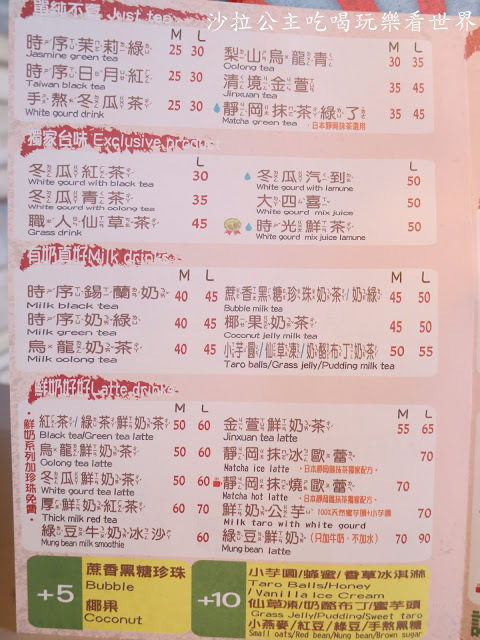 沙拉公主吃喝玩樂看世界
單純不寡 Just tea
M L
時序茉莉綠 25 30
Jasmine green tea
時序日月紅 25 30
Taiwan black tea
手熬冬瓜茶 25 30
White gourd drink
M L
梨山烏龍青 30 35
Oolong tea
清境金萱 35 45
Jinxuan tea
靜岡抹茶綠了 35 45
Matcha green tea ・日本靜岡抹茶選用
獨家台味 Exclusive product
L
冬瓜紅茶 30
White gourd with black tea
冬瓜青茶 35
White gourd with oolong tea
職人仙草茶 45
Grass drink
L
冬瓜汽到 50
White gourd with lamune
大四喜 50
White gourd mix juice
時光鮮茶 50
White gourd mix juice lamune
有奶真好Milk drinks
M L
時序錫蘭奶 40 45
Milk black tea
時序奶綠 40 45
Milk green tea
烏龍奶茶 40 45
Milk oolong tea
M L
蔗香黑糖珍珠奶茶/奶綠 45 50
Bubble milk tea
椰果奶茶 45 50
Coconut jelly milk tea
小芋圓/仙草凍/奶酪布丁奶茶 50 55
Taro balls/Grass jelly/Pudding milk tea
鮮奶好好Latte drunks
・鮮奶系列加珍珠免費・
M L
紅茶/綠茶鮮奶茶 50 60
Black tea/Green tea latte
烏龍鮮奶茶 50 60
Oolong tea latte
冬瓜鮮奶茶 50 60
White gourd tea latte
厚鮮奶紅茶 60 70
Thick milk red tea
綠豆牛奶冰沙 60
Mung bean milk smoothie
M L
金萱鮮奶茶 55 65
Jinxuan tea latte
靜岡抹冰歐蕾 70
Matcha ice latte ・日本靜岡抹茶獨家配方・
靜岡抹燒歐蕾 70
Matcha hot latte ・日本靜岡抹茶獨家配方・
鮮奶公芋 100%天然蜜芋頭+小芋圓 70
Milk taro with white gourd
綠豆鮮奶 (只加牛奶、不加水) 70 90
Mung bean latte
+5
蔗香黑糖珍珠
Bubble
椰果
Coconut
+10
小芋圓/蜂蜜/香草冰淇淋
Taro Balls/Honey
/Vanilla Ice Cream
仙草凍/奶酪布丁/蜜芋頭
Grass Jelly/Pudding/Sweet taro
小燕麥/紅豆/綠豆/手熬黑糖
Small oats/Red bean/Mung bean/Brown